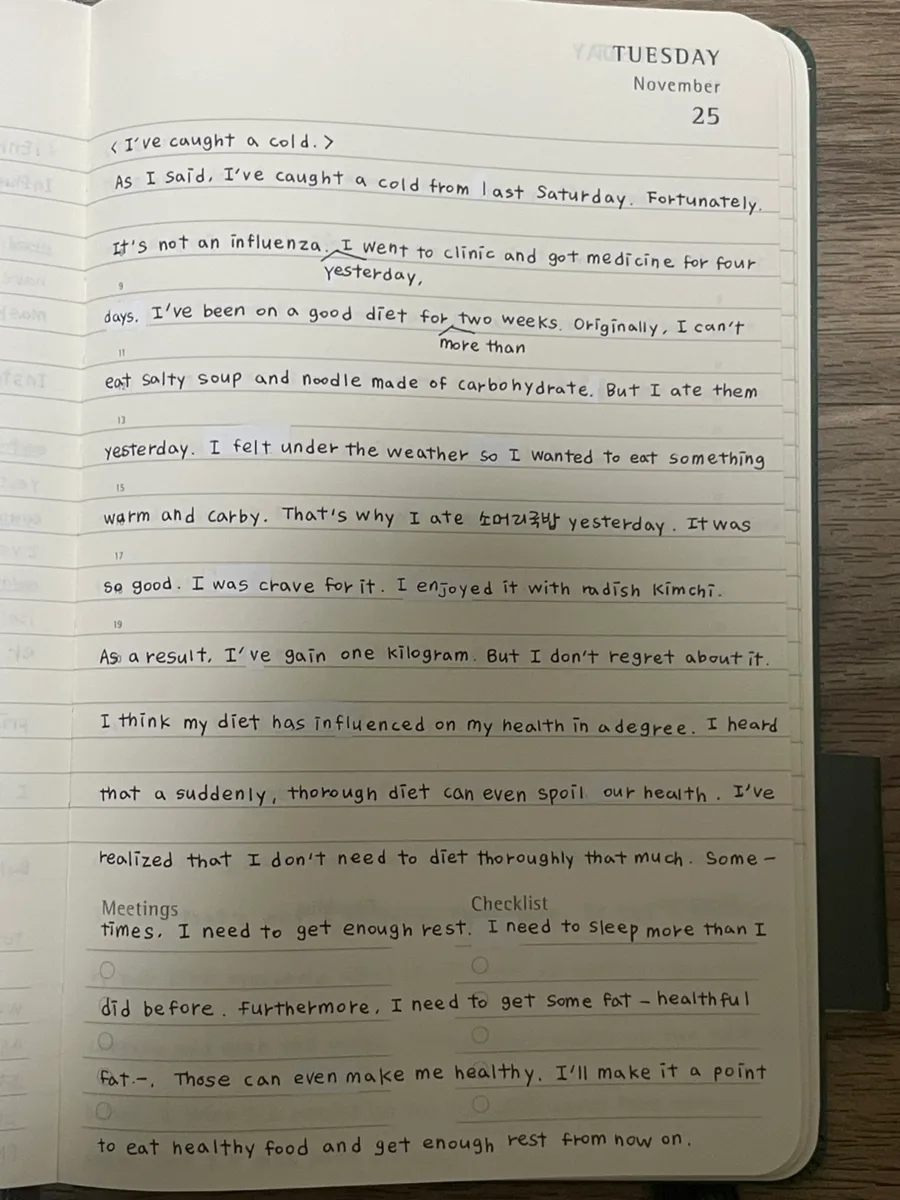 TUESDAY
November
25
< I've caught a cold. >
As I said, I've caught a cold from last Saturday. Fortunately.
It's not an influenza. I went to clinic and got medicine for four
yesterday,
9
days. I've been on a good diet for two weeks. Originally, I can't
more than
11
eat salty soup and noodle made of carbohydrate. But I ate them
13
yesterday. I felt under the weather so I wanted to eat something
15
warm and carby. That's why I ate 소머리국밥 yesterday. It was
17
so good. I was crave for it. I enjoyed it with radish kimchi.
19
As a result, I've gain one kilogram. But I don't regret about it.
I think my diet has influenced on my health in a degree. I heard
that a suddenly, thorough diet can even spoil our health. I've
realized that I don't need to diet thoroughly that much. Some-
Meetings Checklist
times, I need to get enough rest. I need to sleep more than I
did before. Furthermore, I need to get some fat - healthful
fat.-. Those can even make me healthy. I'll make it a point
to eat healthy food and get enough rest from now on.